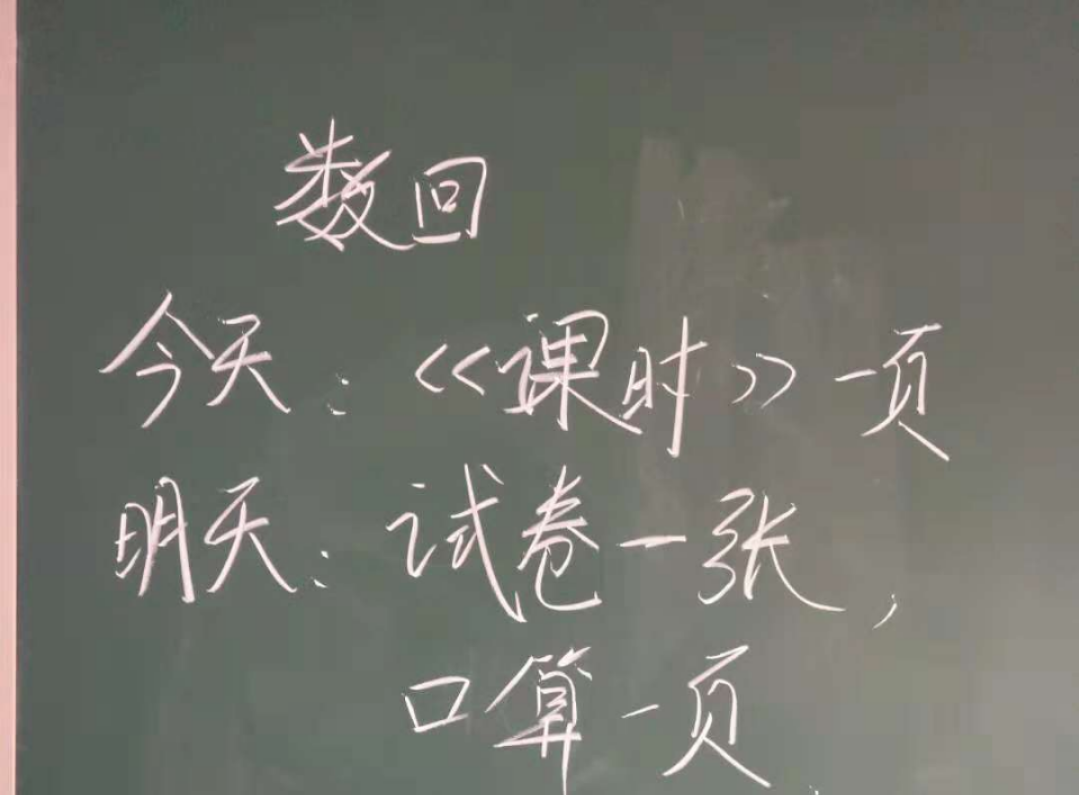 数回
今天：《课时》一页
明天：试卷一张，
口算一页